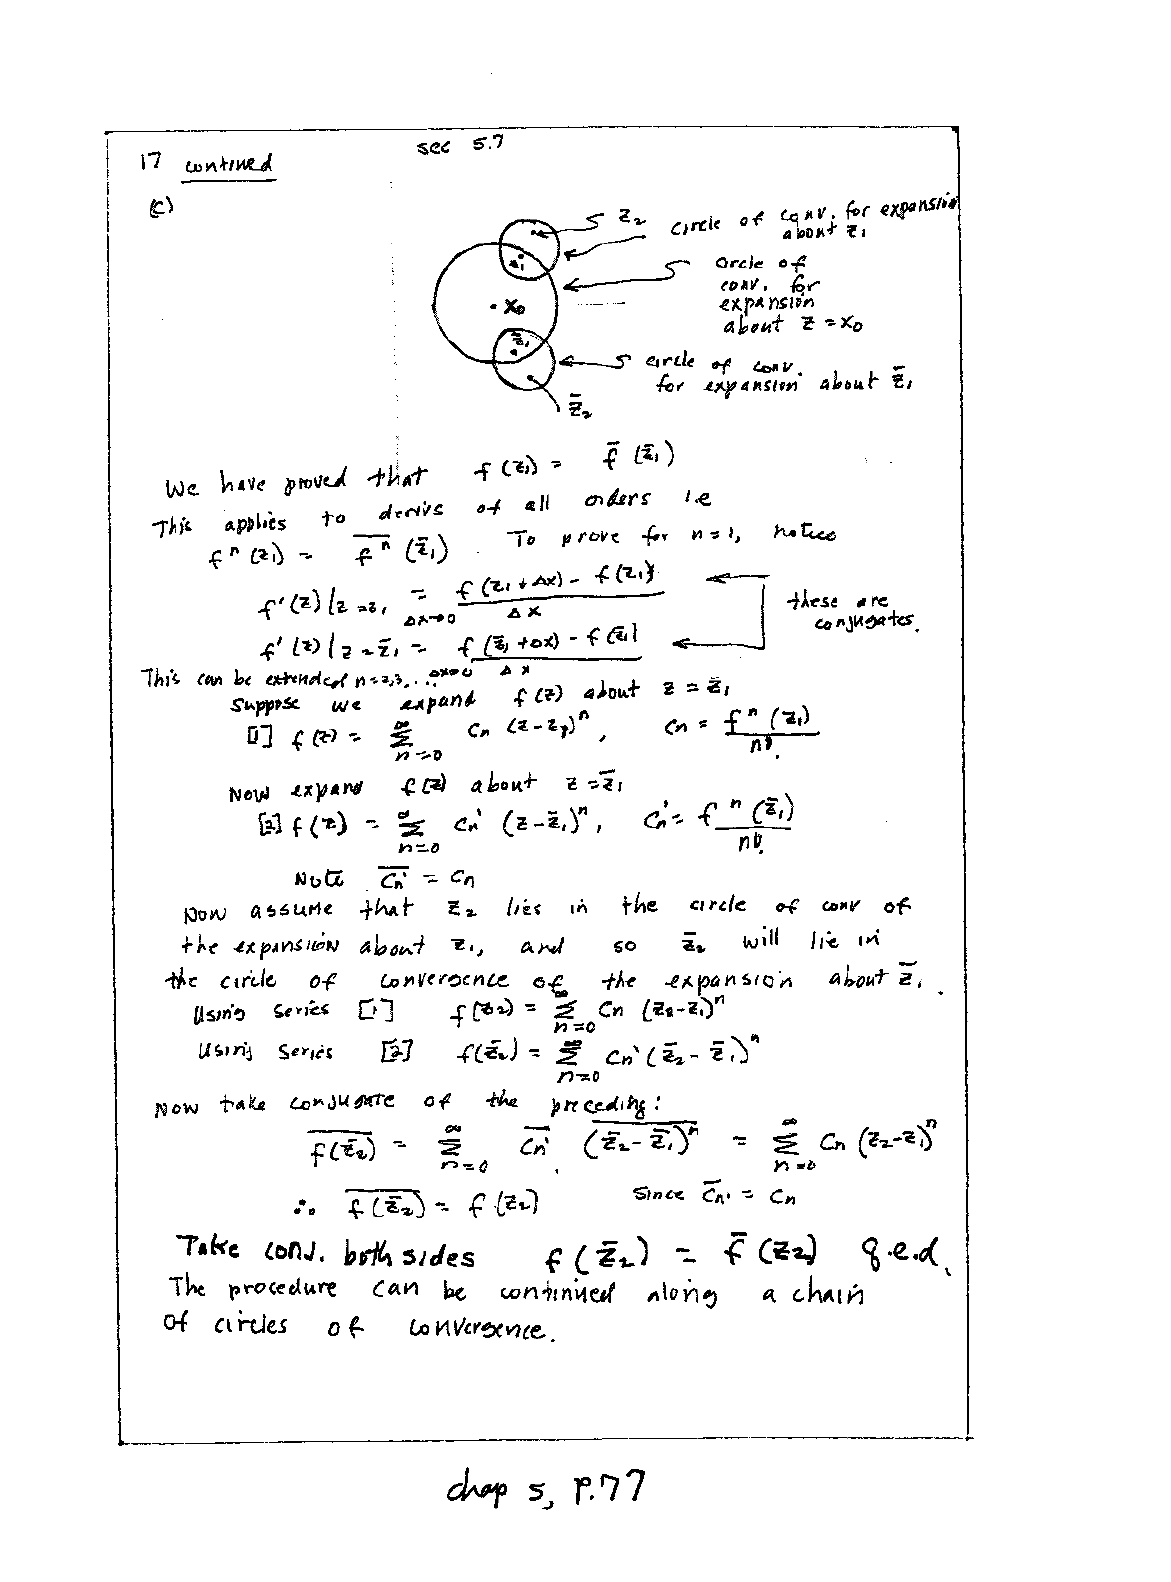 sec 5.7
17 contined
(c)
z₂ circle of conv. for expansion
about z₁
z₁
circle of
conv. for
expansion
about z = x₀
· x₀
z̄₁
circle of conv.
for expansion about z̄₁
z̄₂
We have proved that f(z₁) = f̄(z̄₁)
This applies to derivs of all orders i.e
fⁿ(z₁) = \overline{fⁿ}(z̄₁) . To prove for n=1, notice
f'(z)|z=z₁ = Δx→0 f(z₁+Δx) - f(z₁) / Δx
these are
conjugates.
f'(z)|z=z̄₁ = Δx→0 f(z̄₁+Δx) - f(z̄₁) / Δx
This can be extended n=2,3,...
Suppose we expand f(z) about z = z̄₁
[1] f(z) = ∞ Σ n=0 cn (z-z₁)ⁿ, cn = fⁿ(z₁) / n!
Now expand f(z) about z = z̄₁
[2] f(z) = ∞ Σ n=0 cn' (z-z̄₁)ⁿ, cn' = fⁿ(z̄₁) / n!
Note \overline{cn'} = cn
Now assume that z₂ lies in the circle of conv of
the expansion about z₁, and so z̄₂ will lie in
the circle of convergence of the expansion about z̄₁.
Using series [1] f(z₂) = ∞ Σ n=0 cn (z₂-z₁)ⁿ
Using series [2] f(z̄₂) = ∞ Σ n=0 cn' (z̄₂-z̄₁)ⁿ
Now take conjugate of the preceding:
\overline{f(z̄₂)} = ∞ Σ n=0 \overline{cn'} \overline{(z̄₂-z̄₁)ⁿ} = ∞ Σ n=0 cn (z₂-z₁)ⁿ
∴ \overline{f(z̄₂)} = f(z₂) since \overline{cn'} = cn
Take conj. both sides f(z̄₂) = f̄(z₂) q.e.d.
The procedure can be continued along a chain
of circles of convergence.
chap 5, p.77